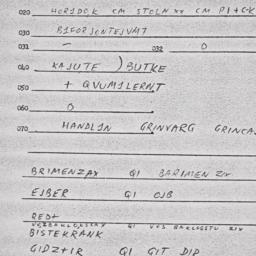 020 HORIDOK CM STOLN XX CM PI+C-K
030 BIFORJONTEJVMT
031 – 032 O
040 KAJUTE ) BUTKE
050 + QVUMILERNT
060 O
070 HANDLIN GRINVARG GRINCA
BRIMENZAX QI BARIMEN ZIX
EJBER QI OJB
RED+
BISTEKRANK
GIDZ+IR QI GIT DIP